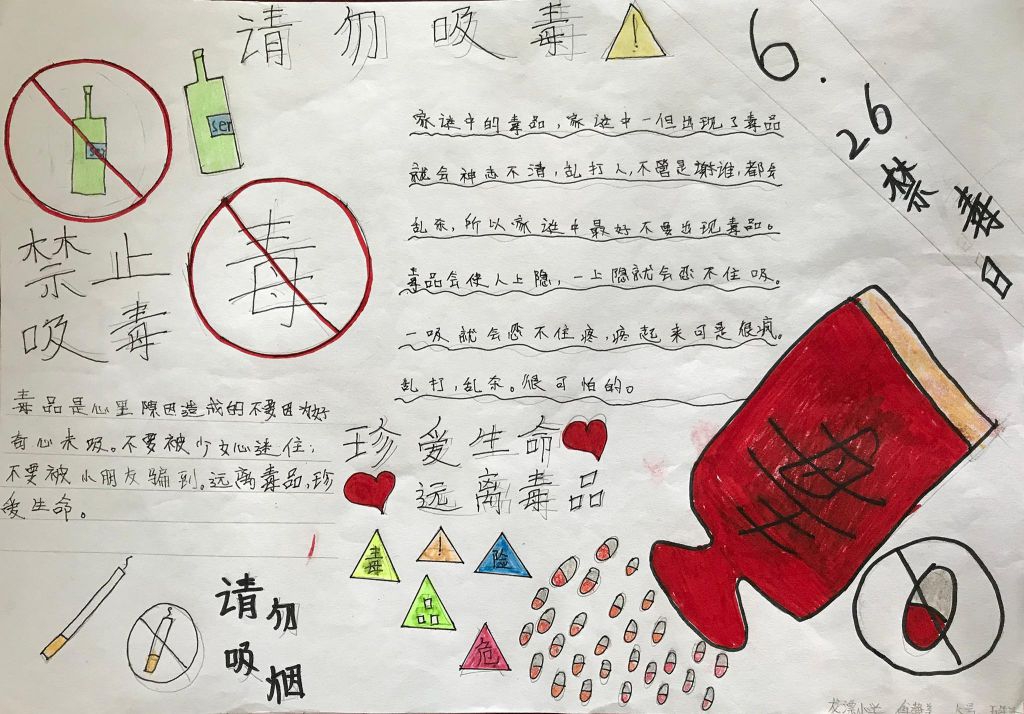 请勿吸毒
!
6.26禁毒日
ser
ser
毒
禁止
吸毒
家谁中的毒品,家谁中一但出现了毒品
就会神志不清,乱打人,不管是谁,都会
乱杀,所以家谁中最好不要出现毒品。
毒品会使人上隐,一上隐就会忍不住吸。
一吸就会忍不住疼,疼起来可是很疯。
乱打,乱杀。很可怕的。
毒品是心里原因造成的不要因为好
奇心未吸。不要被少女心迷住;
不要被小朋友骗到。远离毒品,珍
爱生命。
珍爱生命
远离毒品
毒
!
险
品
危
请勿
吸烟
龙潭小学